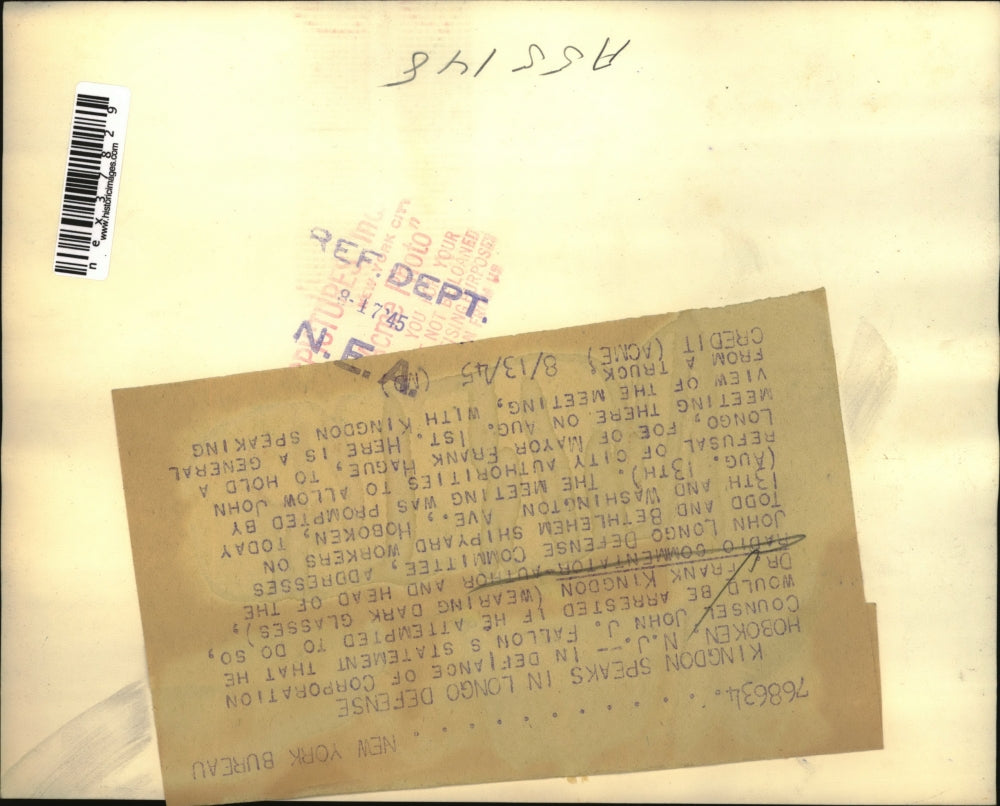 ASS148
nex37829
www.historicimages.com
PICTURES, INC
NEW YORK CITY
"Acme Photo"
YOUR
NOT BE LOANED
REF. DEPT.
8-17'45
N.E.A.
NEW YORK BUREAU
768634. . . . . . . . . .
KINGDON SPEAKS IN LONGO DEFENSE
HOBOKEN, N.J.-- IN DEFIANCE OF CORPORATION
COUNSEL JOHN J. FALLON S STATEMENT THAT HE
WOULD BE ARRESTED IF HE ATTEMPTED TO DO SO,
DR. FRANK KINGDON (WEARING DARK GLASSES),
RADIO COMMENTATOR-AUTHOR AND HEAD OF THE
JOHN LONGO DEFENSE COMMITTEE, ADDRESSES
TODD AND BETHLEHEM SHIPYARD WORKERS ON
13TH AND WASHINGTON AVE., HOBOKEN, TODAY
(AUG. 13TH). THE MEETING WAS PROMPTED BY
REFUSAL OF CITY AUTHORITIES TO ALLOW JOHN
LONGO, FOE OF MAYOR FRANK HAGUE, TO HOLD A
MEETING THERE ON AUG. 1ST. HERE IS A GENERAL
VIEW OF THE MEETING, WITH KINGDON SPEAKING
FROM A TRUCK.
CREDIT (ACME) 8/13/45